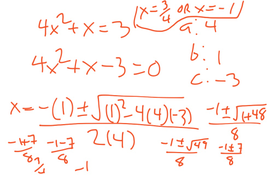 4x² + x = 3
x = 3/4 OR x = -1
a: 4
4x² + x - 3 = 0
b: 1
c: -3
x = -(1) ± √((1)² - 4(4)(-3)) / 2(4)
-1 ± √(1+48) / 8
-1 ± √49 / 8
-1 ± 7 / 8
-1+7 / 8
-1-7 / 8
-1